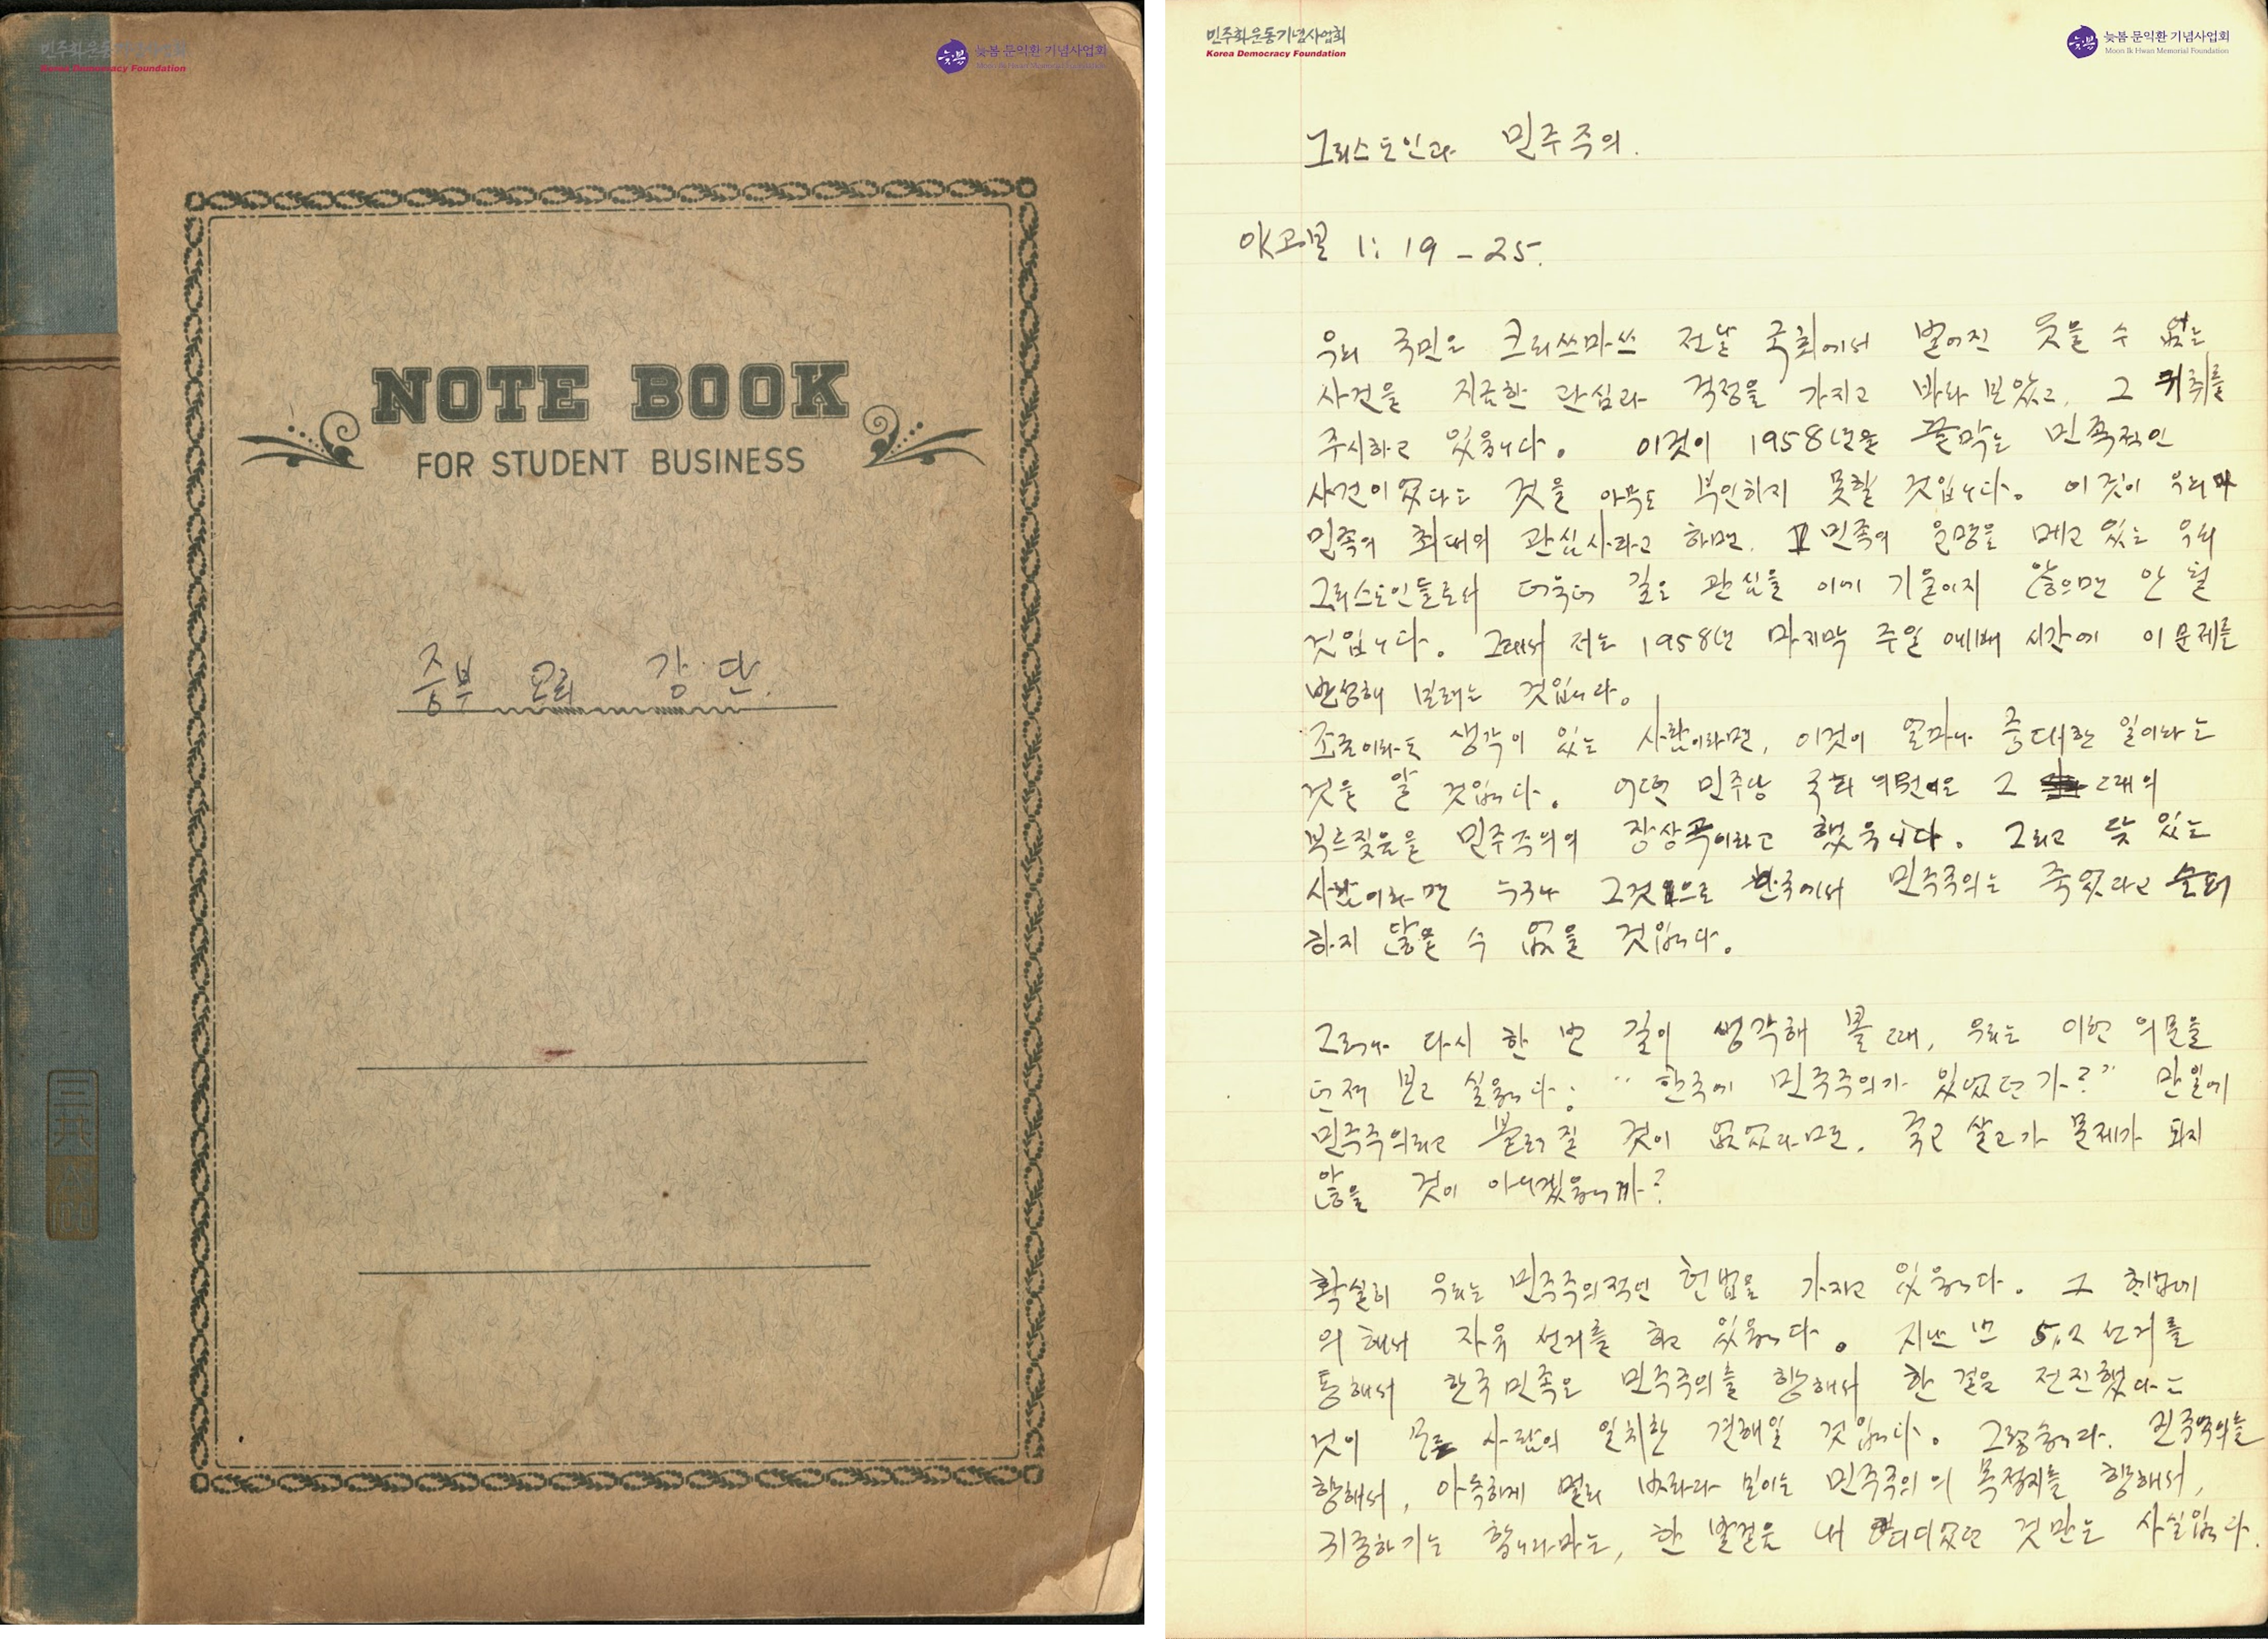 민주화운동기념사업회
Korea Democracy Foundation
늦봄
늦봄 문익환 기념사업회
Moon Ik Hwan Memorial Foundation
NOTE BOOK
FOR STUDENT BUSINESS
중부 모퉁 강단.
三共
민주화운동기념사업회
Korea Democracy Foundation
늦봄
늦봄 문익환 기념사업회
Moon Ik Hwan Memorial Foundation
그리스도인과 민주주의.
야고보 1: 19 - 25.
우리 국민은 크리쓰마쓰 전날 국회에서 벌어진 웃을 수 없는
사건을 지극한 관심과 걱정을 가지고 바라 보았고, 그 귀취를
주시하고 있읍니다. 이것이 1958년을 끝막는 민족적인
사건이었다는 것을 아무도 부인하지 못할 것입니다. 이것이 우리
민족의 최대의 관심사라고 하면, 민족의 운명을 메고 있는 우리
그리스도인들로서 더욱더 깊은 관심을 이에 기울이지 않으면 안 될
것입니다. 그래서 저는 1958년 마지막 주일 예배 시간에 이 문제를
반성해 보려는 것입니다.
조금이라도 생각이 있는 사람이라면, 이것이 얼마나 중대한 일이라는
것을 알 것입니다. 어떤 민주당 국회의원은 그 때의
부르짖음을 민주주의의 장상곡이라고 했읍니다. 그리고 뜻 있는
사람이라면 누구나 그것으로 한국에서 민주주의는 죽었다고 슬퍼
하지 않을 수 없을 것입니다.
그러나 다시 한 번 깊이 생각해 볼 때, 우리는 이런 의문을
던져 보고 싶읍니다: "한국에 민주주의가 있었던가?" 만일에
민주주의라고 불리어질 것이 없었다면, 죽고 살고가 문제가 되지
않을 것이 아니겠읍니까?
확실히 우리는 민주주의적인 헌법을 가지고 있읍니다. 그 헌법에
의해서 자유 선거를 하고 있읍니다. 지난 번 5.2 선거를
통해서 한국 민족은 민주주의를 향해서 한 걸음 전진했다는
것이 모든 사람의 일치한 견해일 것입니다. 그렇습니다. 민주주의를
향해서, 아득하게 멀리 바라다 보이는 민주주의의 목적지를 향해서,
귀중하기는 합니다마는, 한 발걸음 내 디디었던 것만은 사실입니다.